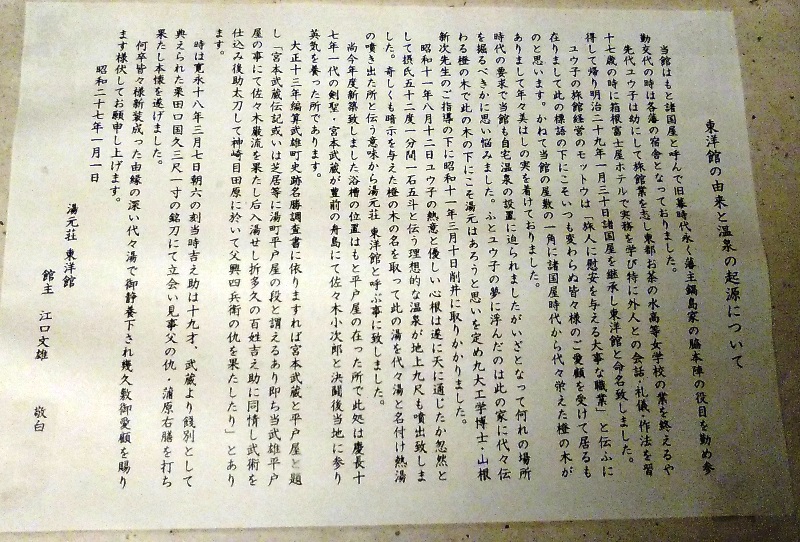 東洋館の由来と温泉の起源について
当館はもと諸国屋と呼んで旧幕時代永く藩主鍋島家の脇本陣の役目を勤め参
勤交代の時は各藩の宿舎となっておりました。
先代ユウ子は幼にして旅館業を志し東都お茶の水高等女学校の業を終えるや
十七歳の時に箱根富士屋ホテルで実務を学び特に外人との会話・礼儀・作法を習
得して帰り明治二十九年一月三十日諸国屋を継承し東洋館と命名致しました。
ユウ子の旅館経営のモットウは「旅人に慰安を与える大事な職業」と伝ふに
在りまして此の標語の下にこそいつも変わらぬ皆々様のご愛顧を受けて居るも
のと思います。かねて当館の屋敷の一角に諸国屋時代から代々栄えた橙の木が
ありまして年々美はしの実を着けておりました。
時代の要求で当館も自宅温泉の設置に迫られましたがいざとなって何れの場所
を掘るべきかに思い悩みました。ふとユウ子の夢に浮んだのは此の家に代々伝
わる橙の木で此の木の下にこそ湯元はあろうと思いを定め九大工学博士・山根
新次先生のご指導の下に昭和十一年三月十日削井に取りかかりました。
昭和十一年八月十二日ユウ子の熱意と優しい心根は遂に天に通じたか忽然と
して摂氏五十二度一分間一石五斗と伝う理想的な温泉が地上九尺も噴出致しま
した。奇しくも暗示を与えた橙の木の名を取って此の湯を代々湯と名付け熱湯
の噴き出た所と伝う意味から湯元荘 東洋館と呼ぶ事に致しました。
尚今年度新築致しました浴槽の位置はもと平戸屋の在った所で此処は慶長十
七年一代の剣聖・宮本武蔵が豊前の舟島にて佐々木小次郎と決闘後当地に参り
英気を養った所であります。
大正十三年編算武雄町史跡名勝調査書に依りますれば宮本武蔵と平戸屋と題
し「宮本武蔵伝記或いは芝居等に湯町平戸屋の段と謂えるあり即ち当武雄平戸
屋の事にて佐々木巌流を果たし后入湯せし折多久の百姓吉之助に同情し武術を
仕込み後助太刀して神崎目四原に於いて父興四兵衛の仇を果たしたり」とあり
ます。
時は寛永十八年三月七日朝六の刻当時吉之助は十九才、武蔵より餞別として
典えられた栗田口国久三尺一寸の銘刀にて立会い見事父の仇・蒲原右膳を打ち
果たし本懐を遂げました。
何卒皆々様新装成った由縁の深い代々湯で御静養下され幾久敷御愛顧を賜り
ます様伏してお願申し上げます。
昭和二十七年一月一日
湯元荘 東洋館
館主 江口文雄 敬白